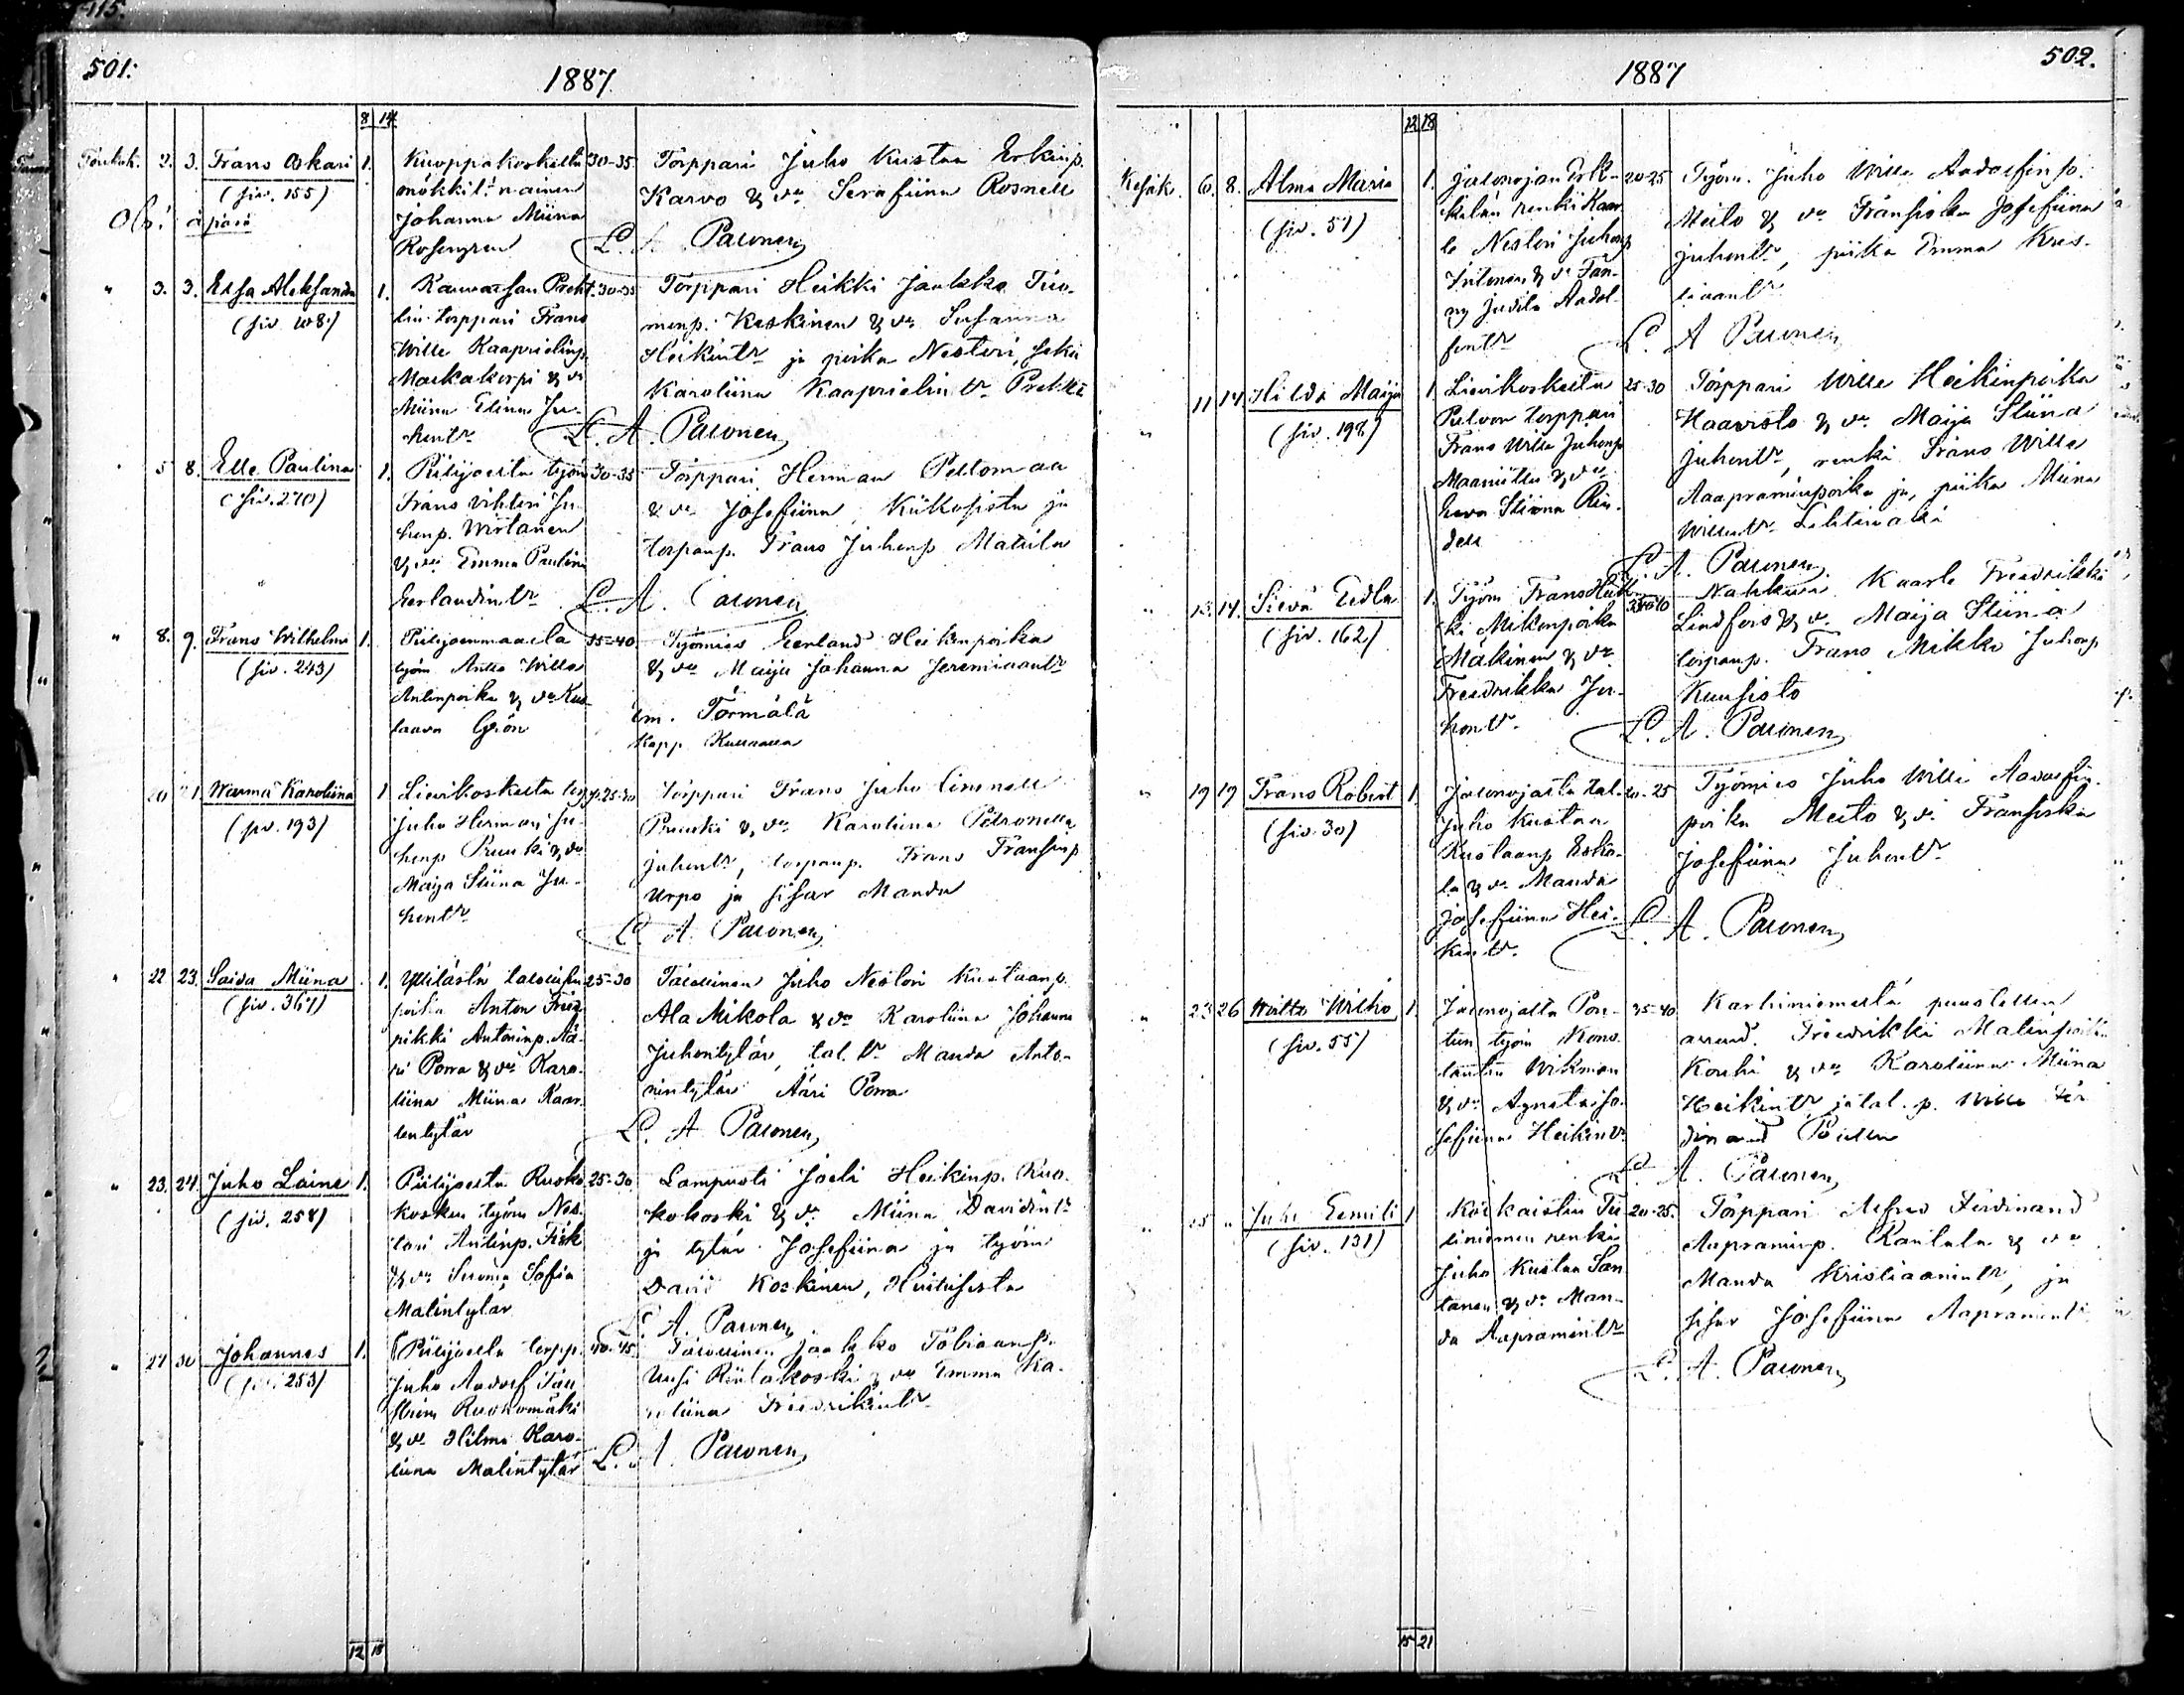 115.
501.
1887
8 14
Toukok. 2. 3. Frans Oskari 1.
(siv. 155)
Ob! äpärä
Kuoppakoskelta
mökkil. nainen
Johanna Miina
Rosengren
30-35
Torppari Juho Kustaa Erkinp.
Karvo & vo Serafiina Rosnell
L. A. Paronen
" 3. 3. Elsa Aleksandra 1.
(siv. 108)
torppari Frans
Wille Kaaprielinp.
Miina Elina Ju-
hontr
30-35
Torppari Heikki Jaakko Tuo-
menp. Keskinen & vo Susanna
Heikintr ja poika Nestori, sekä
Karoliina Kaaprielintr
L. A. Paronen
" 5 8. Elle Paulina 1.
(siv. 270)
Piilijoelta työm
Frans Vihtori Ju-
honp. Wirtanen
& vo Emma Paulina
Eerlandintr
30-35
Torppari Herman Peltomaa
& vo Josefiina Kiikoisista ja
torpanp. Frans Juhonp Mattila
L. A. Paronen
" 8. 9. Frans Wilhelmi 1.
(siv. 243)
työm Antto Wille
Antinpoika & vo Kus-
taava Grön
35-40
Työmies Eerland Heikinpoika
& vo Maija Johanna Jeremiaantr
em. Törmälä
Kapp. Kullaalla
20 21 Warma Karoliina 1
(siv. 193)
Lievikoskelta
Juho Herman Ju-
honp Pruuki & vo
Maija Stiina Ju-
hontr
25-30
Torppari Frans Juho Linnell
Pruuki & vo Karoliina Petronella
Juhontr, torpanp. Frans Fransinp
Urpo ja sisar Manda
L. A. Paronen
" 22 23. Saida Miina 1.
(siv. 367)
poika Anton Fried-
rikki Antoninp. Ää-
ri Porra & vo Karo-
liina Miina Kaar-
lentytär
25-30
Talollinen Juho Nestori Kustaanp.
Ala Mikola & vo Karoliina Johanna
Juhontytär, tal. tr Manda Anto-
nintytär Ääri Porra
L. A. Paronen
" 23. 24. Juho Laine 1.
(siv. 258)
Piilijoelta Ruoko
kosken työm Nes-
tori Antinp. Fisk
& vo Suoma Sofia
Matintytär
25-30
Lampuoti Joeli Heikinp. Ruo-
kokoski & vo Miina Davidintr
ja tytär Josefiina ja työm
David Koskinen, Huittisista
L. A. Paronen
" 27 30 Johannes 1.
(siv. 253)
Piilijoelta torpp.
Juho Aadolf
Ruokomäki
& vo Hilma Karo-
liina Matintytär
40-45
Talollinen Jaakko Tobiaanp.
Uusi Riitakoski & vo Emma Ka-
roliina Friedrikintr
L. A. Paronen
12 18
502.
1887
12 18
Kesäk. 6. 8. Alma Maria 1.
(siv. 57)
renki Kaar-
le Nestori Juhonp
& vo Fan-
ny Judita Aadol-
fintr
20-25
Työm. Juho Wille Aadolfinp.
Meito & vo Fransiska Josefiina
Juhontr, piika Emma Kris-
tiaantr
L. A. Paronen
" 11 14 Hilda Maija 1
(siv. 198)
Lievikoskelta
torppari
Frans Wille Juhonp
Maaniittu & vo
Eeva Stiina Rin-
dell
25-30
Torppari Wille Heikinpoika
Haavisto & vo Maija Stiina
Juhontr, renki Frans Wille
Aapraminpoika ja piika Miina
Willentr Lehtimäki
L. A. Paronen
" 13. 14. Sievä Eedla 1.
(siv. 162)
Työm Frans Heik-
ki Mikonpoika
Mäkinen & vo
Freedrikka Ju-
hontr
35-40
Nahkuri Kaarle Freedrikki
Lindfors & vo Maija Stiina
torpanp. Frans Mikko Juhonp
Kuusisto
L. A. Paronen
" 19 19 Frans Robert 1.
(siv. 30)
Jalonojalta tal.
Juho Kustaa
Kustaanp Esko-
la & vo Manda
Josefiina Hei-
kintr
20-25
Työmies Juho Wille Aadolfin-
poika Meito & vo Fransiska
Josefiina Juhontr
L. A. Paronen
" 23 26 Waltto Wilho 1
(siv. 55)
Jalonojalta
työm Kons-
tantin Wikman
& vo Agneta Jo-
sefiina Heikintr
35-40
Karhiniemeltä puustellin
arend. Friedrikki Matinpoika
Kouhi & vo Karoliina Miina
Heikintr ja tal. p. Wille Fer-
dinand
L. A. Paronen
" 25 " Juho Eemili 1
(siv. 131)
renki
Juho Kustaa San-
tanen & vo Man-
da Aapramintr
20-25
Torppari Alfred Ferdinand
Aapraminp. Rantala & vo
Manda Kristiaanintr, ja
sisar Josefiina Aapramintr
L. A. Paronen
15 21